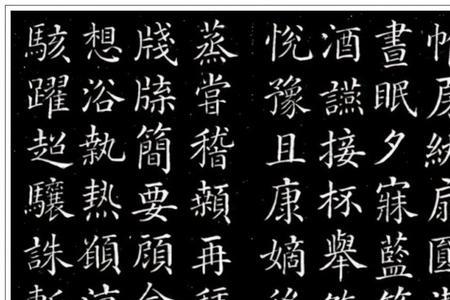 房紈扇圓
晝眠夕寐藍
酒讌接杯舉
悅豫且康嫡
蒸嘗稽顙再
牋牒簡要顧
想浴執熱願
駭躍超驤誅